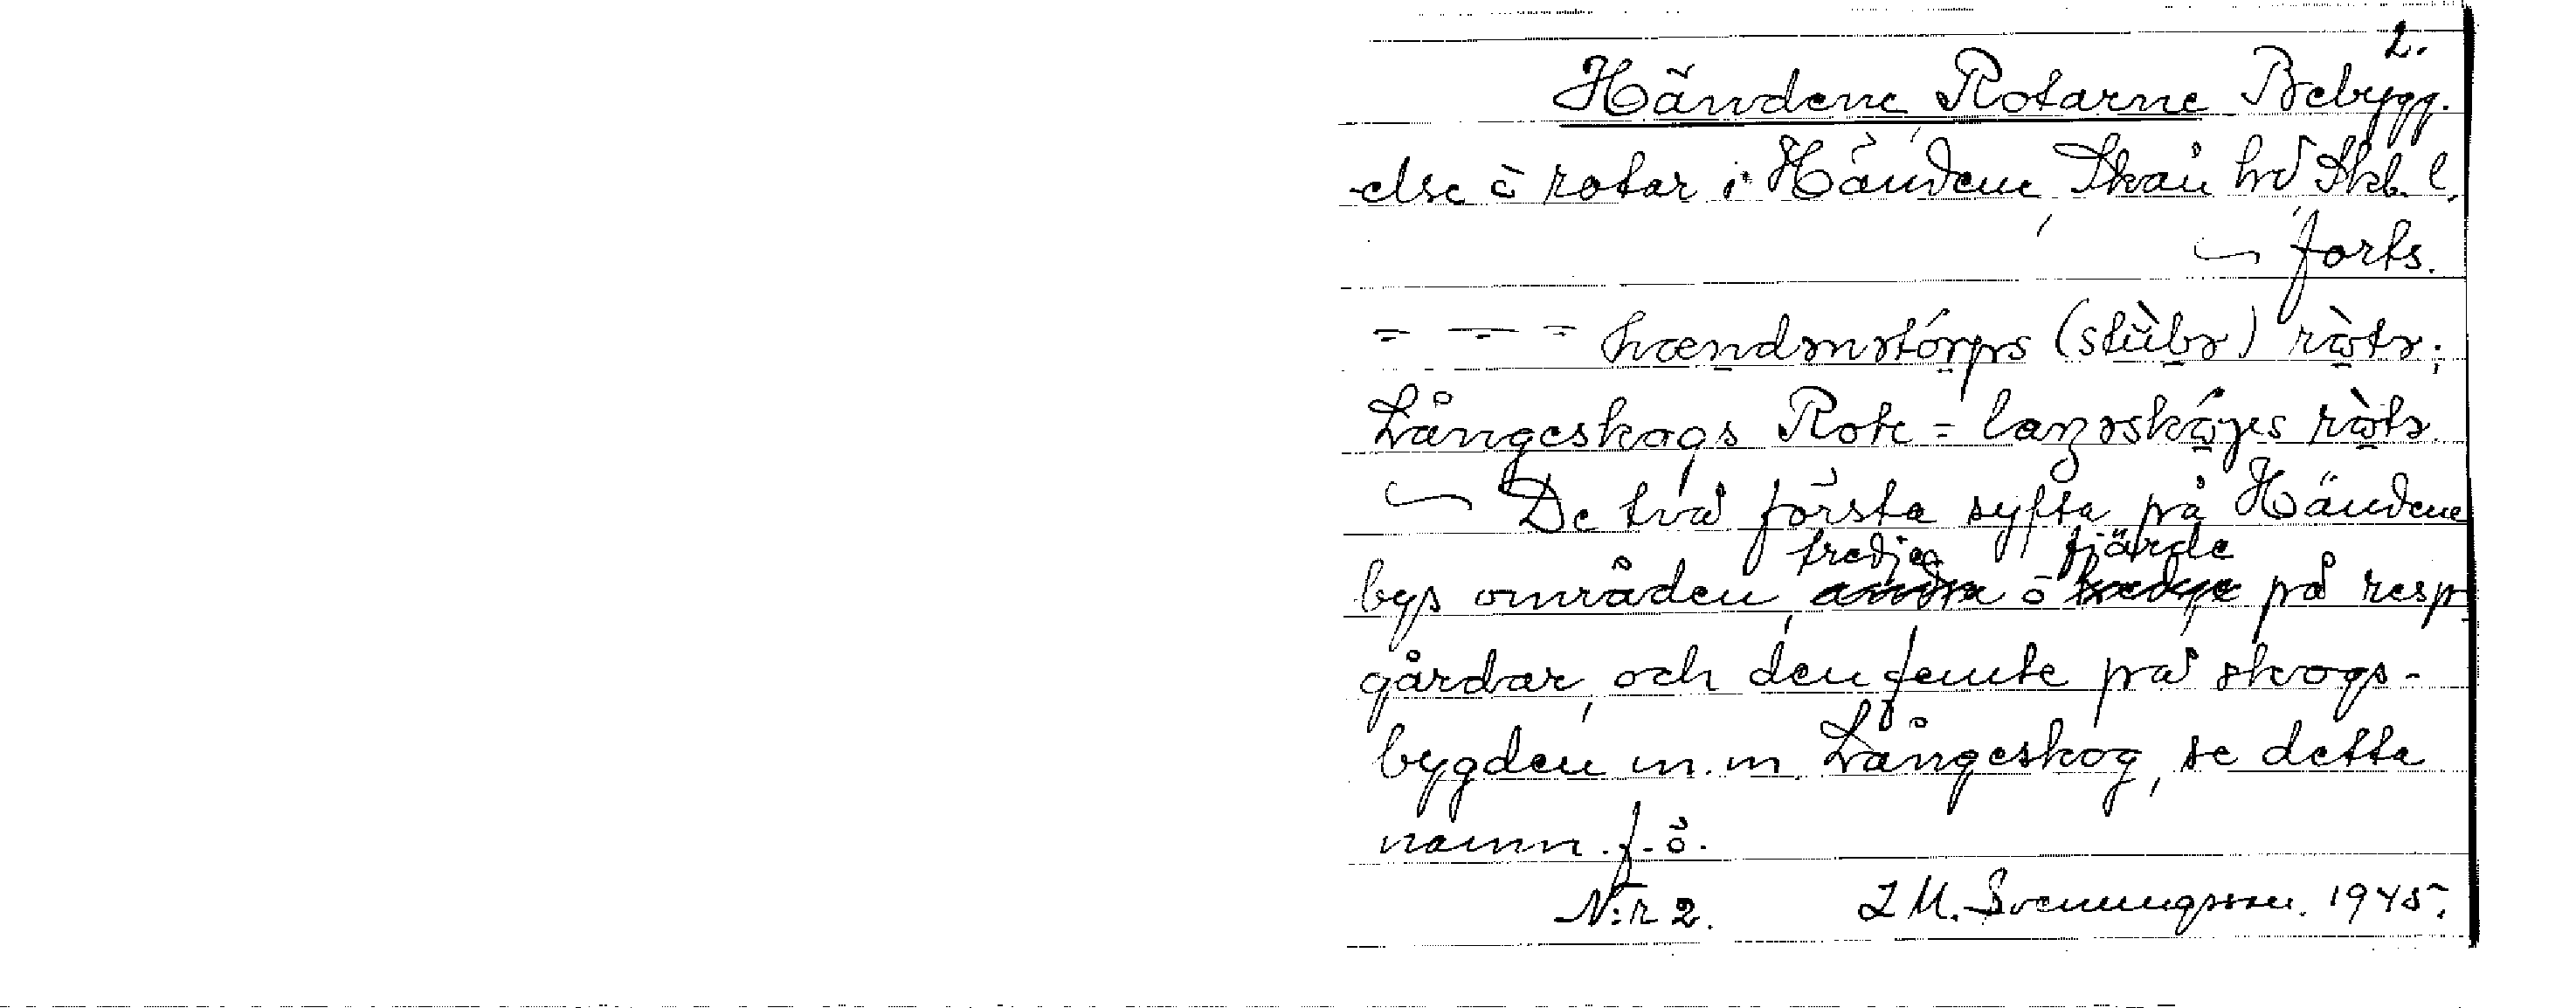 2.
Händene, Rotarne Bebygg.
else å rotar i Händene, Skån hd, Skb. l.
forts.
— — — hændənstórps (stùbə) rò̤tə;
Långeskogs Rote = laŋəskó̤ges rò̤tə.
De två första syfta på Händene
bys områden, tredje ö fjärde på resp.
gårdar, och den femte på skogs-
bygden m.m. Långeskog, se detta
namn. f. ö.
N:r 2. I M. Svenungsson. 1945.